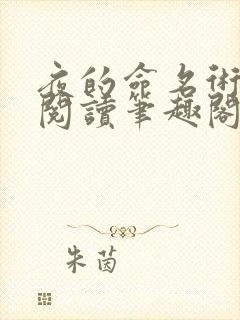 夜的命名術
閱讀筆趣閣
朱茵